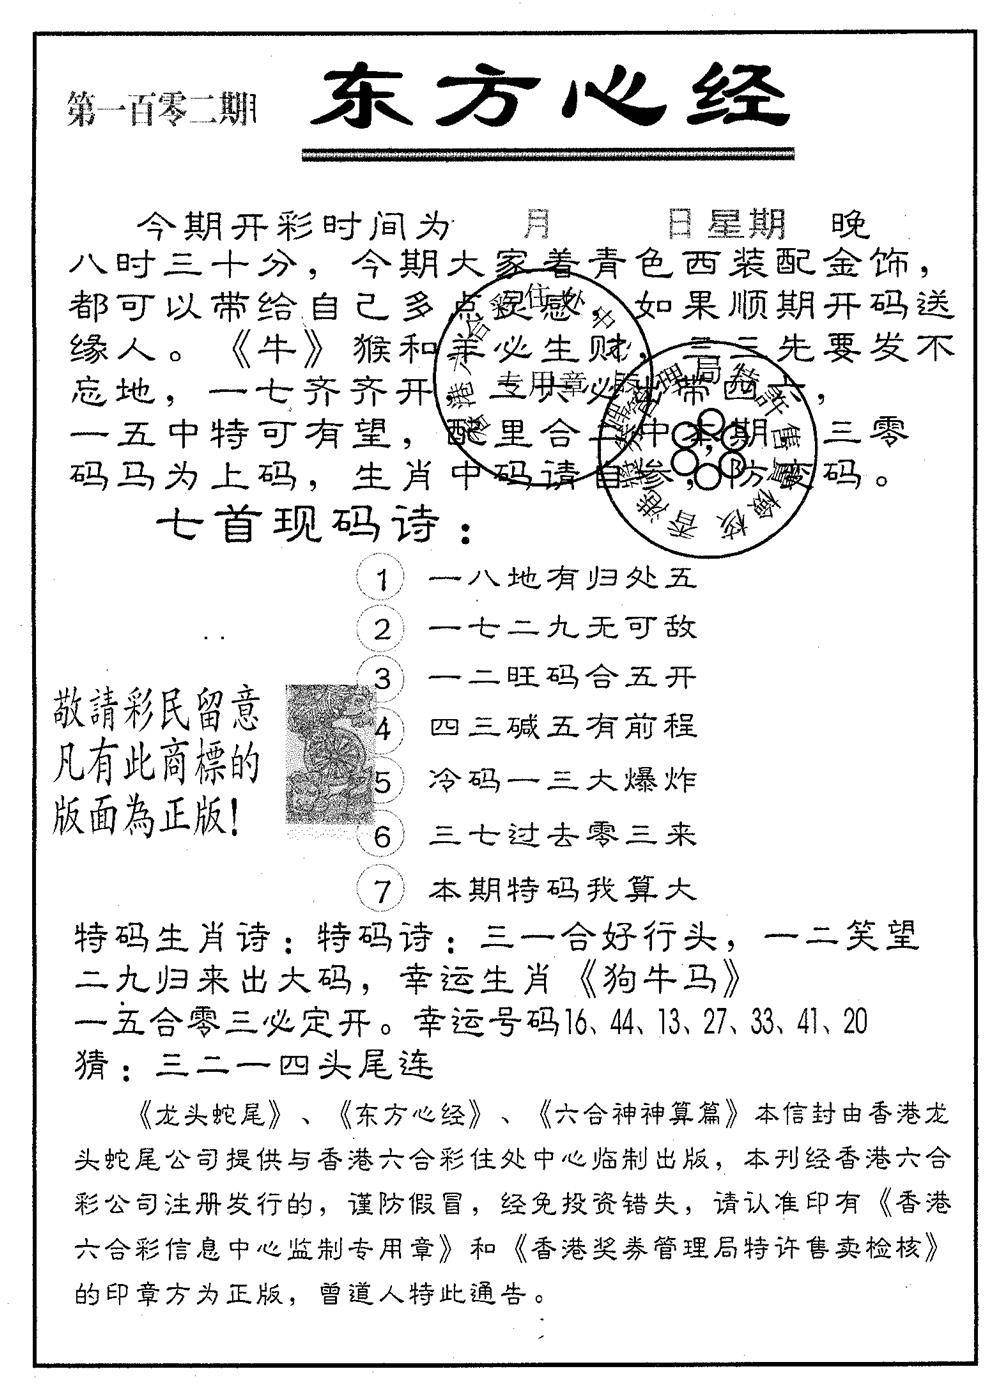 第一百零二期
东方心经
今期开彩时间为 月 日星期 晚
八时三十分，今期大家着青色西装配金饰，
都可以带给自己多点灵感，如果顺期开码送
缘人。《牛》猴和羊必生财，二三先要发不
忘地，一七齐齐开，二六必出带四六，
一五中特可有望，配里合一中本期，三零
码马为上码，生肖中码请自参，防 码。
七首现码诗：
1 一八地有归处五
2 一七二九无可敌
3 一二旺码合五开
4 四三碱五有前程
5 冷码一三大爆炸
6 三七过去零三来
7 本期特码我算大
敬請彩民留意
凡有此商標的
版面為正版！
特码生肖诗：特码诗：三一合好行头，一二笑望
二九归来出大码，幸运生肖《狗牛马》
一五合零三必定开。幸运号码16、44、13、27、33、41、20
猜：三二一四头尾连
《龙头蛇尾》、《东方心经》、《六合神神算篇》本信封由香港龙
头蛇尾公司提供与香港六合彩住处中心临制出版，本刊经香港六合
彩公司注册发行的，谨防假冒，经免投资错失，请认准印有《香港
六合彩信息中心监制专用章》和《香港奖券管理局特许售卖检核》
的印章方为正版，曾道人特此通告。
专用章